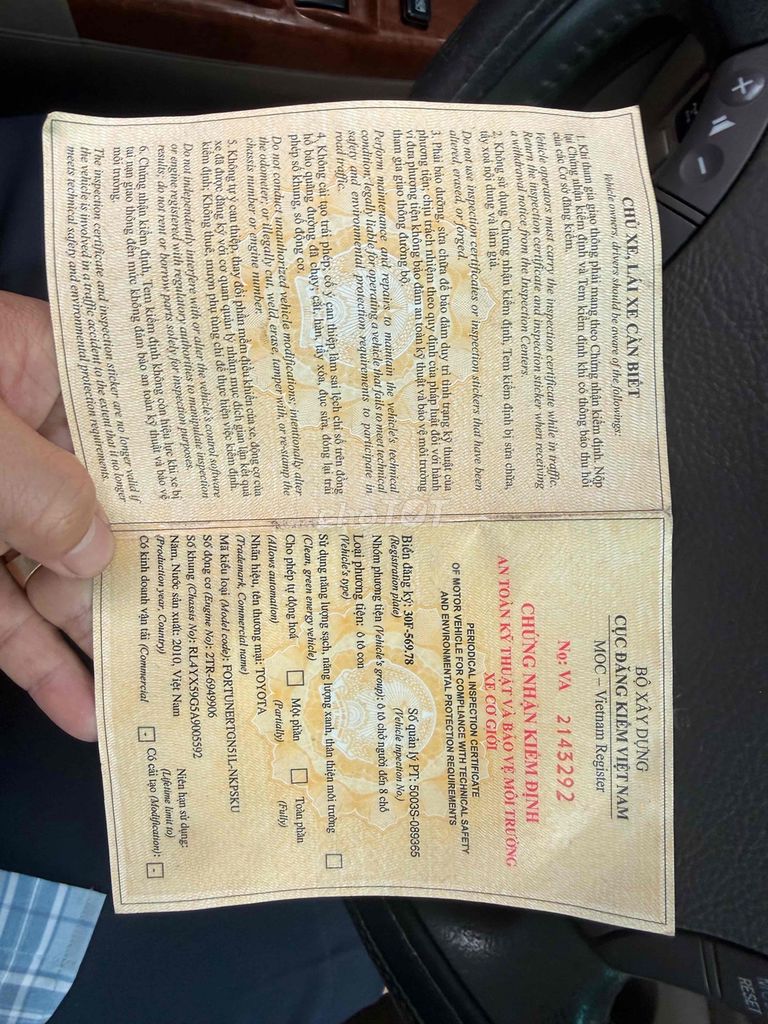 CHỦ XE, LÁI XE CẦN BIẾT
Vehicle owners, drivers should be aware of the followings
1. Khi tham gia giao thông phải mang theo Chứng nhận kiểm định. Nộp
lại Chứng nhận kiểm định và Tem kiểm định khi có thông báo thu hồi
của các Cơ sở đăng kiểm.
Vehicle operators must carry the inspection certificate while in traffic.
Return the inspection certificate and inspection sticker when receiving
a withdrawal notice from the Inspection Centers.
2. Không sử dụng Chứng nhận kiểm định, Tem kiểm định bị sửa chữa,
tẩy xoá nội dung và làm giả.
Do not use inspection certificates or inspection stickers that have been
altered, erased, or forged.
3. Phải bảo dưỡng, sửa chữa để bảo đảm duy trì tình trạng kỹ thuật của
phương tiện; chịu trách nhiệm theo quy định của pháp luật đối với hành
vi đưa phương tiện không bảo đảm an toàn kỹ thuật và bảo vệ môi trường
tham gia giao thông đường bộ.
Perform maintenance and repairs to maintain the vehicle's technical
condition; legally liable for operating a vehicle that fails to meet technical
safety and environmental protection requirements to participate in
road traffic.
4. Không cải tạo trái phép, cố ý can thiệp làm sai lệch chỉ số trên đồng
hồ báo quãng đường đã chạy; cắt, hàn, tẩy xóa, đục sửa, đóng lại trái
phép số khung, số động cơ.
Do not conduct unauthorized vehicle modifications; intentionally alter
the odometer, or illegally cut, weld, erase, tamper with, or re-stamp the
chassis number or engine number.
5. Không tự ý can thiệp, thay đổi phần mềm điều khiển của xe động cơ của
xe đã được đăng ký với cơ quan quản lý nhằm mục đích gian lận kết quả
kiểm định; Không thuê, mượn phụ tùng chỉ để thực hiện việc kiểm định.
Do not independently interfere with or alter the vehicle's control software
or engine registered with regulatory authorities to manipulate inspection
results; do not rent or borrow parts solely for inspection purposes.
6. Chứng nhận kiểm định, Tem kiểm định không còn hiệu lực khi xe bị
tai nạn giao thông đến mức không đảm bảo an toàn kỹ thuật và bảo vệ
môi trường.
The inspection certificate and inspection sticker are no longer valid if
the vehicle is involved in a traffic accident to the extent that it no longer
meets technical safety and environmental protection requirements.
BỘ XÂY DỰNG
CỤC ĐĂNG KIỂM VIỆT NAM
MOC – Vietnam Register
No: VA 2143292
CHỨNG NHẬN KIỂM ĐỊNH
AN TOÀN KỸ THUẬT VÀ BẢO VỆ MÔI TRƯỜNG
XE CƠ GIỚI
PERIODICAL INSPECTION CERTIFICATE
OF MOTOR VEHICLE FOR COMPLIANCE WITH TECHNICAL SAFETY
AND ENVIRONMENTAL PROTECTION REQUIREMENTS
Biển đăng ký: 30F-569.78 Số quản lý PT: 5003S-089365
(Registration plate) (Vehicle inpection No.)
Nhóm phương tiện (Vehicle's group): ô tô chở người đến 8 chỗ
Loại phương tiện: ô tô con
(Vehicle's type)
Sử dụng năng lượng sạch, năng lượng xanh, thân thiện môi trường
(Clean, green energy vehicle)
Cho phép tự động hoá Một phần Toàn phần
(Allows automation) (Partially) (Fully)
Nhãn hiệu, tên thương mại: TOYOTA
(Trademark, Commercial name)
Mã kiểu loại (Model code): FORTUNERTGN51L-NKPSKU
Số động cơ (Engine No): 2TR-6949906
Số khung (Chassis No): RL4YX59G5A9005592
Năm, Nước sản xuất: 2010, Việt Nam Niên hạn sử dụng:
(Production year, Country) (Lifetime limit to)
Có kinh doanh vận tải (Commercial - Có cải tạo (Modification): -
choTOT
RESET